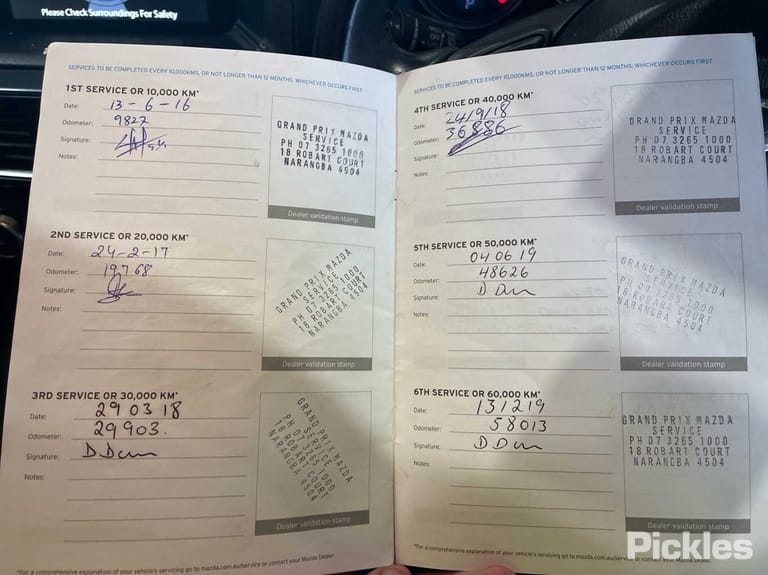 Please Check Surroundings For Safety
P
SERVICES TO BE COMPLETED EVERY 10,000KMS, OR NOT LONGER THAN 12 MONTHS, WHICHEVER OCCURS FIRST
1ST SERVICE OR 10,000 KM*
Date: 13-6-16
Odometer: 9827
Signature:
Notes:
GRAND PRIX MAZDA
SERVICE
PH 07 3265 1000
18 ROBART COURT
NARANGBA 4504
Dealer validation stamp
2ND SERVICE OR 20,000 KM*
Date: 24-2-17
Odometer: 19768
Signature:
Notes:
GRAND PRIX MAZDA
SERVICE
PH 07 3265 1000
18 ROBART COURT
NARANGBA 4504
Dealer validation stamp
3RD SERVICE OR 30,000 KM*
Date: 29 03 18
Odometer: 29903.
Signature:
Notes:
GRAND PRIX MAZDA
SERVICE
PH 07 3265 1000
18 ROBART COURT
NARANGBA 4504
Dealer validation stamp
*For a comprehensive explanation of your vehicle's servicing go to mazda.com.au/service or contact your Mazda Dealer.
SERVICES TO BE COMPLETED EVERY 10,000KMS, OR NOT LONGER THAN 12 MONTHS, WHICHEVER OCCURS FIRST
4TH SERVICE OR 40,000 KM*
Date: 24/9/18
Odometer: 36886
Signature:
Notes:
GRAND PRIX MAZDA
SERVICE
PH 07 3265 1000
18 ROBART COURT
NARANGBA 4504
Dealer validation stamp
5TH SERVICE OR 50,000 KM*
Date: 04 06 19
Odometer: 48626
Signature:
Notes:
GRAND PRIX MAZDA
SERVICE
PH 07 3265 1000
18 ROBART COURT
NARANGBA 4504
Dealer validation stamp
6TH SERVICE OR 60,000 KM*
Date: 131219
Odometer: 58013
Signature:
Notes:
GRAND PRIX MAZDA
SERVICE
PH 07 3265 1000
18 ROBART COURT
NARANGBA 4504
Dealer validation stamp
*For a comprehensive explanation of your vehicle's servicing go to mazda.com.au/service or contact your Mazda Dealer.
Pickles